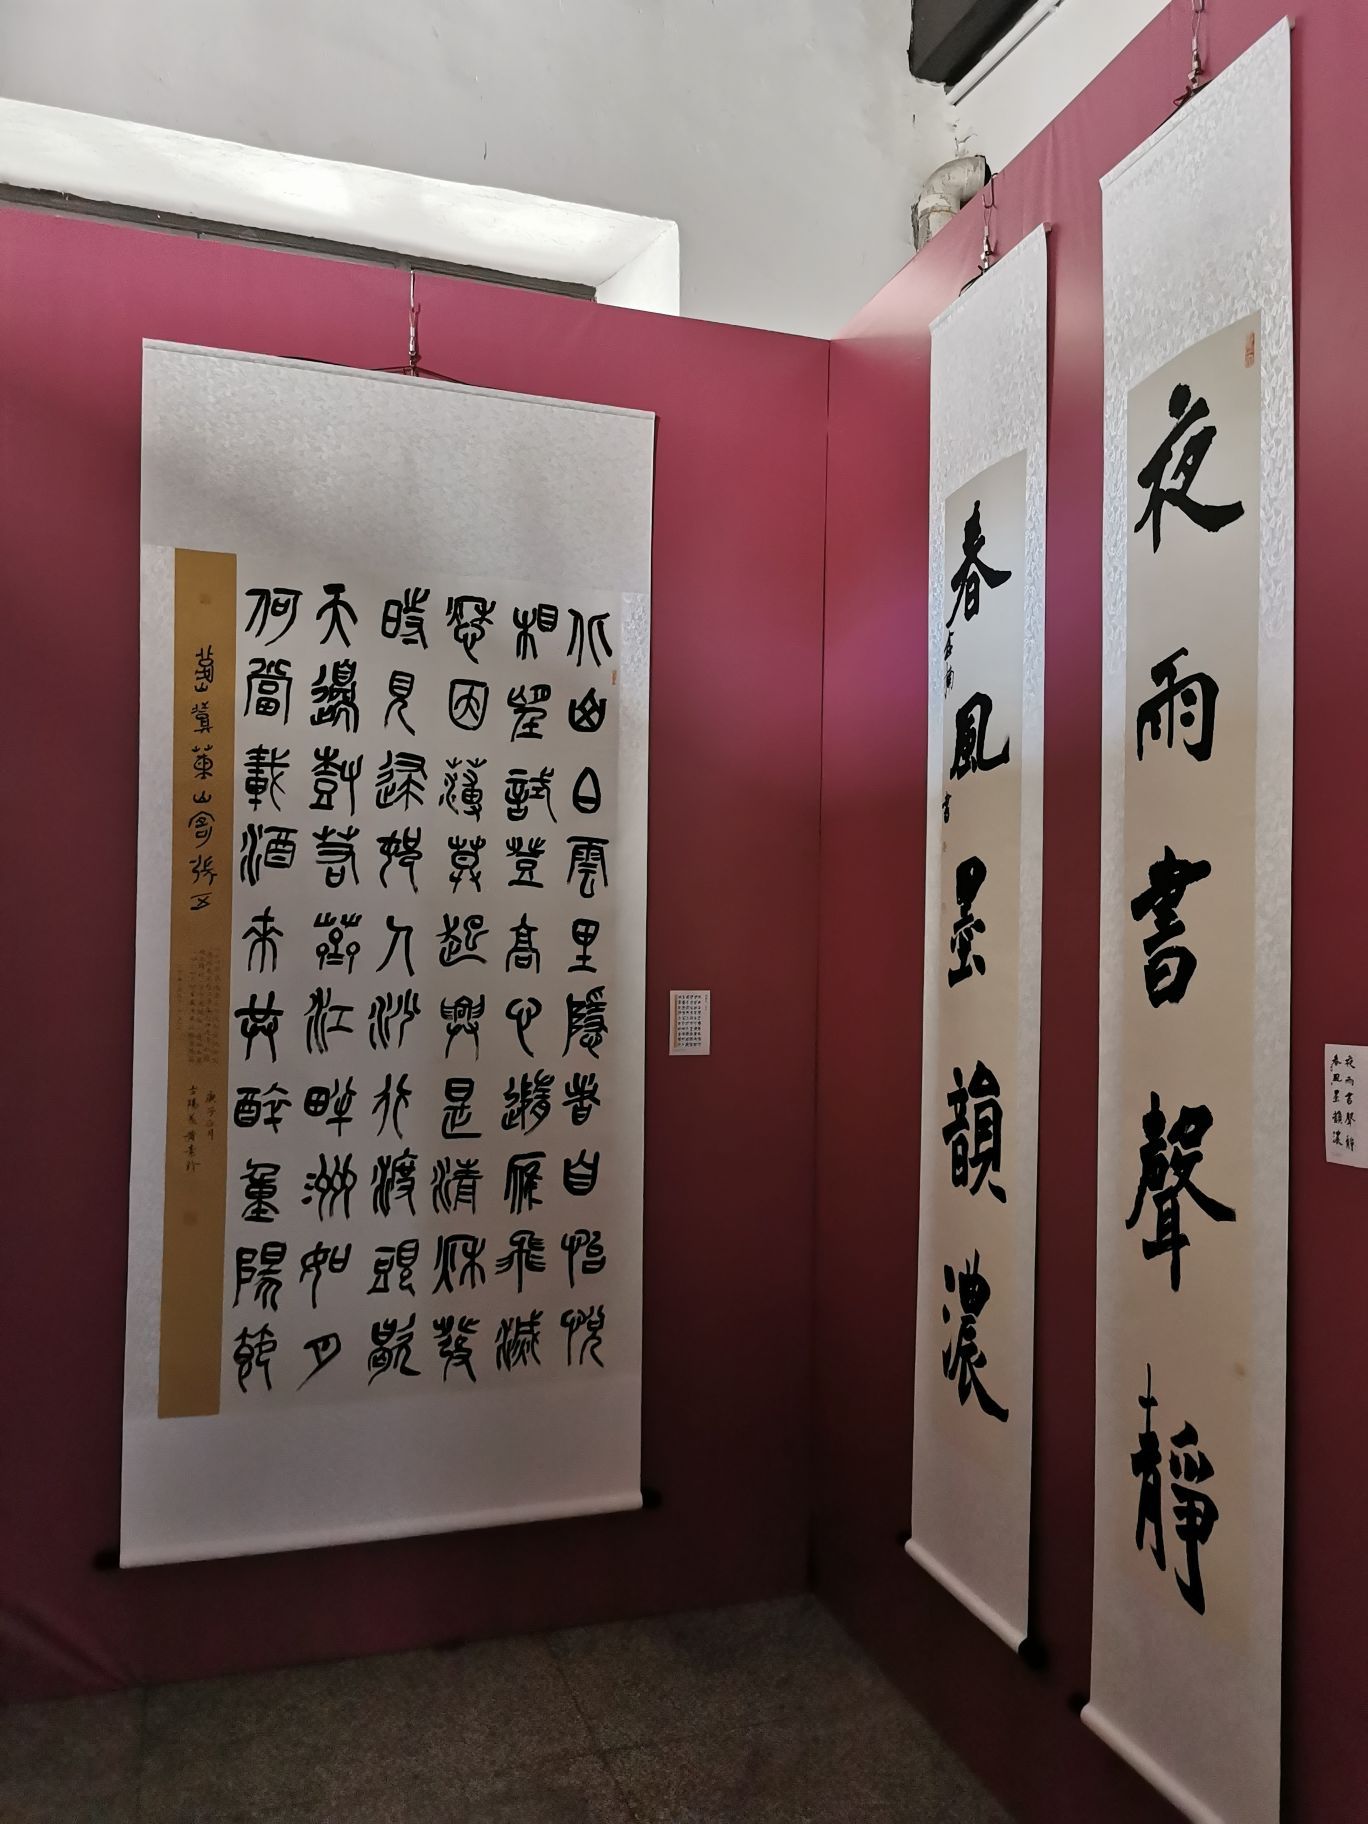 夜雨書聲靜
春風墨韻濃
北山白雲里隱者自怡悅
相望試登高心隨雁飛滅
愁因薄莫起興是清秋發
時見歸村人沙行渡頭歇
天邊樹若薺江畔洲如月
何當載酒來共醉重陽節
山寄張五
夜雨書聲靜
春風墨韻濃